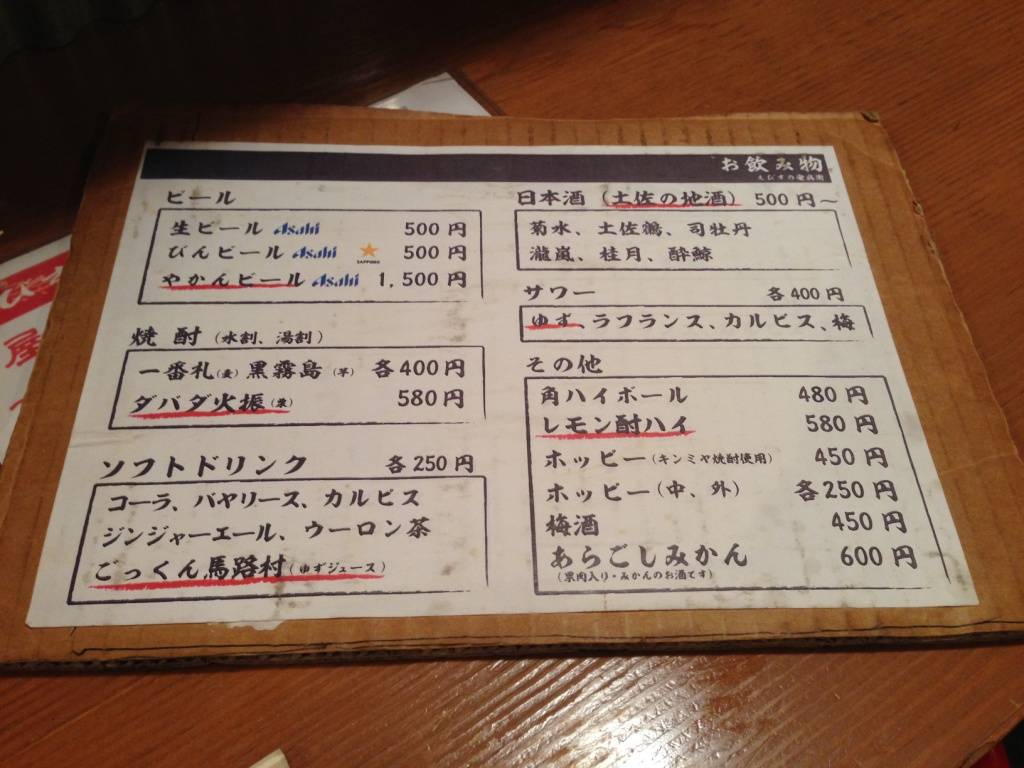 お飲み物
ビール
生ビール Asahi 500円
びんビール Asahi SAPPORO 500円
やかんビール Asahi 1,500円
焼酎(水割、湯割)
一番札(麦)黒霧島(芋)各400円
ダバダ火振(栗) 580円
ソフトドリンク 各250円
コーラ、バヤリース、カルピス
ジンジャーエール、ウーロン茶
ごっくん馬路村(ゆずジュース)
日本酒(土佐の地酒) 500円~
菊水、土佐鶴、司牡丹
瀧嵐、桂月、酔鯨
サワー 各400円
ゆず、ラフランス、カルピス、梅
その他
角ハイボール 480円
レモン酎ハイ 580円
ホッピー(キンミヤ焼酎使用) 450円
ホッピー(中、外) 各250円
梅酒 450円
あらごしみかん 600円
(果肉入り・みかんのお酒です)
屋